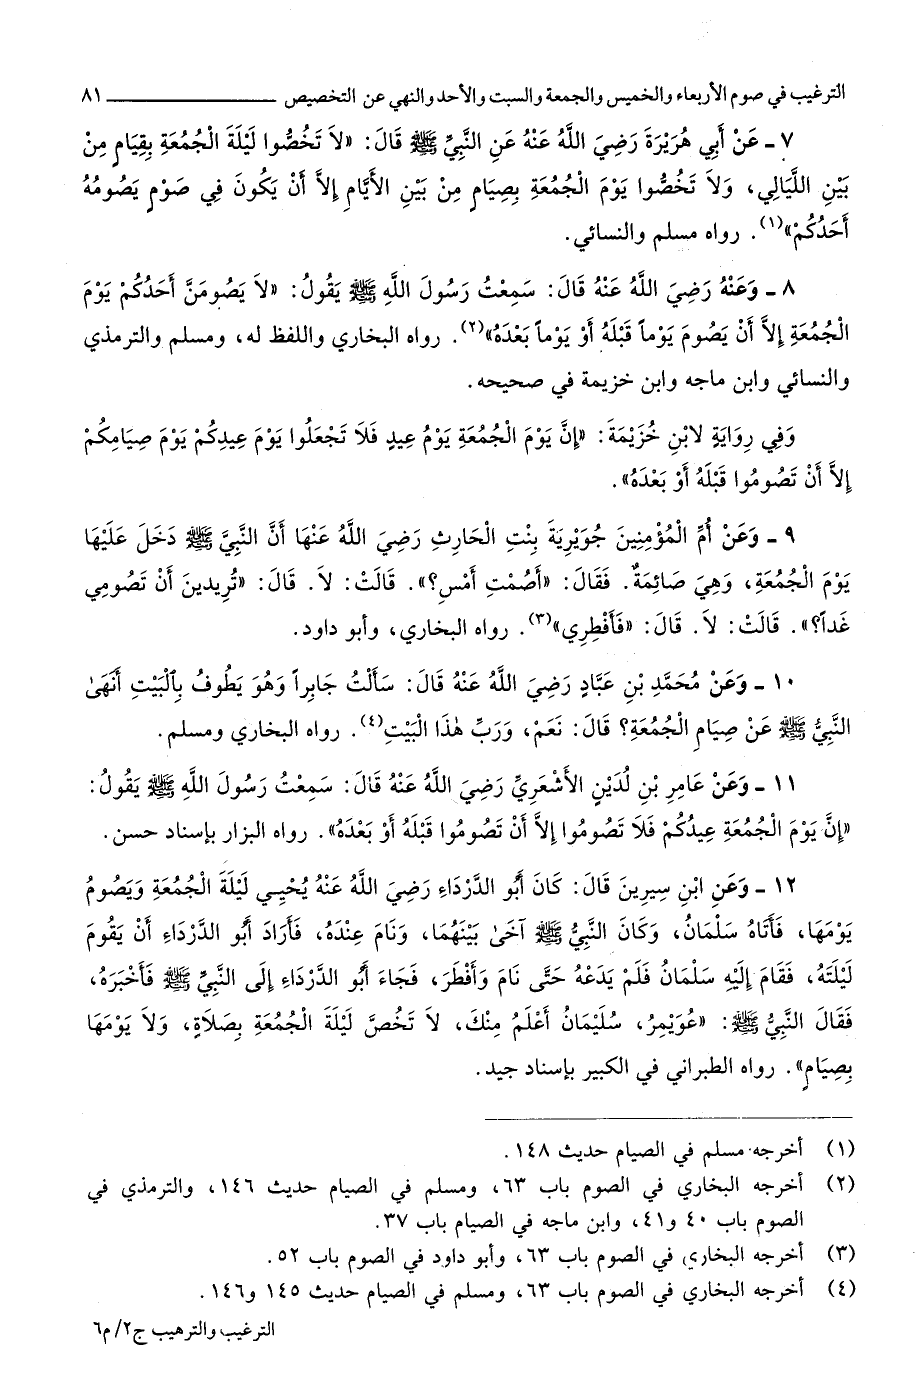 الترغيب في صوم الأربعاء والخميس والجمعة والسبت والأحد والنهي عن التخصيص ٨١
٧ ـ عَنْ أَبِي هُرَيْرَةَ رَضِيَ اللَّهُ عَنْهُ عَنِ النَّبِيِّ ﷺ قَالَ: «لاَ تَخُصُّوا لَيْلَةَ الْجُمُعَةِ بِقِيَامٍ مِنْ
بَيْنِ اللَّيَالِي، وَلاَ تَخُصُّوا يَوْمَ الْجُمُعَةِ بِصِيَامٍ مِنْ بَيْنِ الأَيَّامِ إِلاَّ أَنْ يَكُونَ فِي صَوْمٍ يَصُومُهُ
أَحَدُكُمْ»(١). رواه مسلم والنسائي.
٨ ـ وَعَنْهُ رَضِيَ اللَّهُ عَنْهُ قَالَ: سَمِعْتُ رَسُولَ اللَّهِ ﷺ يَقُولُ: «لاَ يَصُومَنَّ أَحَدُكُمْ يَوْمَ
الْجُمُعَةِ إِلاَّ أَنْ يَصُومَ يَوْماً قَبْلَهُ أَوْ يَوْماً بَعْدَهُ»(٢). رواه البخاري واللفظ له، ومسلم والترمذي
والنسائي وابن ماجه وابن خزيمة في صحيحه.
وَفِي رِوَايَةٍ لابْنِ خُزَيْمَةَ: «إِنَّ يَوْمَ الْجُمُعَةِ يَوْمُ عِيدٍ فَلاَ تَجْعَلُوا يَوْمَ عِيدِكُمْ يَوْمَ صِيَامِكُمْ
إِلاَّ أَنْ تَصُومُوا قَبْلَهُ أَوْ بَعْدَهُ».
٩ ـ وَعَنْ أُمِّ الْمُؤْمِنِينَ جُوَيْرِيَةَ بِنْتِ الْحَارِثِ رَضِيَ اللَّهُ عَنْهَا أَنَّ النَّبِيَّ ﷺ دَخَلَ عَلَيْهَا
يَوْمَ الْجُمُعَةِ، وَهِيَ صَائِمَةٌ. فَقَالَ: «أَصُمْتِ أَمْسِ؟». قَالَتْ: لاَ. قَالَ: «تُرِيدِينَ أَنْ تَصُومِي
غَداً؟». قَالَتْ: لاَ. قَالَ: «فَأَفْطِرِي»(٣). رواه البخاري، وأبو داود.
١٠ ـ وَعَنْ مُحَمَّدِ بْنِ عَبَّادٍ رَضِيَ اللَّهُ عَنْهُ قَالَ: سَأَلْتُ جَابِراً وَهُوَ يَطُوفُ بِالْبَيْتِ أَنَهَىٰ
النَّبِيُّ ﷺ عَنْ صِيَامِ الْجُمُعَةِ؟ قَالَ: نَعَمْ، وَرَبِّ هٰذَا الْبَيْتِ(٤). رواه البخاري ومسلم.
١١ ـ وَعَنْ عَامِرِ بْنِ لُدَيْنٍ الأَشْعَرِيِّ رَضِيَ اللَّهُ عَنْهُ قَالَ: سَمِعْتُ رَسُولَ اللَّهِ ﷺ يَقُولُ:
«إِنَّ يَوْمَ الْجُمُعَةِ عِيدُكُمْ فَلاَ تَصُومُوا إِلاَّ أَنْ تَصُومُوا قَبْلَهُ أَوْ بَعْدَهُ». رواه البزار بإسناد حسن.
١٢ ـ وَعَنِ ابْنِ سِيرِينَ قَالَ: كَانَ أَبُو الدَّرْدَاءِ رَضِيَ اللَّهُ عَنْهُ يُحْيِي لَيْلَةَ الْجُمُعَةِ وَيَصُومُ
يَوْمَهَا، فَأَتَاهُ سَلْمَانُ، وَكَانَ النَّبِيُّ ﷺ آخَىٰ بَيْنَهُمَا، وَنَامَ عِنْدَهُ، فَأَرَادَ أَبُو الدَّرْدَاءِ أَنْ يَقُومَ
لَيْلَتَهُ، فَقَامَ إِلَيْهِ سَلْمَانُ فَلَمْ يَدَعْهُ حَتَّى نَامَ وَأَفْطَرَ، فَجَاءَ أَبُو الدَّرْدَاءِ إِلَى النَّبِيِّ ﷺ فَأَخْبَرَهُ،
فَقَالَ النَّبِيُّ ﷺ: «عُوَيْمِرُ، سُلَيْمَانُ أَعْلَمُ مِنْكَ، لاَ تَخُصَّ لَيْلَةَ الْجُمُعَةِ بِصَلاَةٍ، وَلاَ يَوْمَهَا
بِصِيَامٍ». رواه الطبراني في الكبير بإسناد جيد.
(١) أخرجه مسلم في الصيام حديث ١٤٨.
(٢) أخرجه البخاري في الصوم باب ٦٣، ومسلم في الصيام حديث ١٤٦، والترمذي في
الصوم باب ٤٠ و٤١، وابن ماجه في الصيام باب ٣٧.
(٣) أخرجه البخاري في الصوم باب ٦٣، وأبو داود في الصوم باب ٥٢.
(٤) أخرجه البخاري في الصوم باب ٦٣، ومسلم في الصيام حديث ١٤٥ و١٤٦.
الترغيب والترهيب ج٢/ م٦